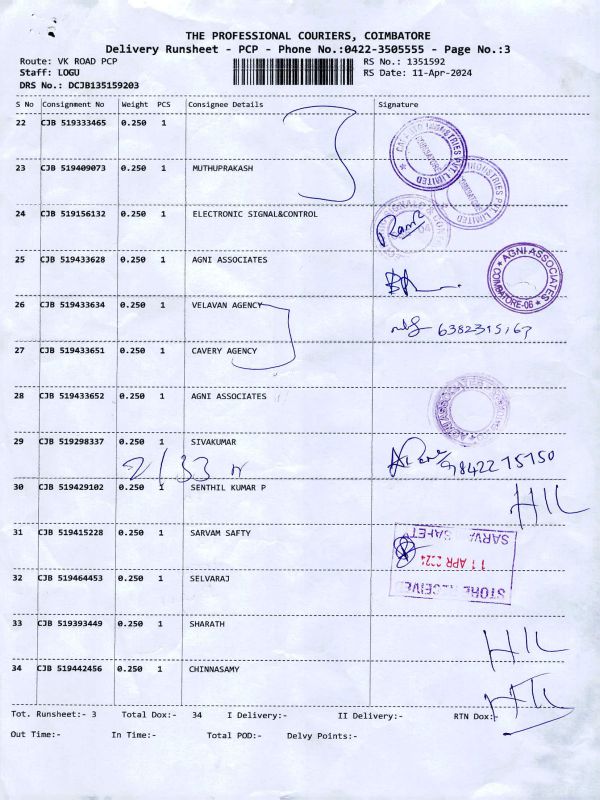 THE PROFESSIONAL COURIERS, COIMBATORE
Delivery Runsheet - PCP - Phone No.:0422-3505555 - Page No.:3
Route: VK ROAD PCP RS No.: 1351592
Staff: LOGU RS Date: 11-Apr-2024
DRS No.: DCJB135159203
S No Consignment No Weight PCS Consignee Details Signature
22 CJB 519333465 0.250 1
23 CJB 519409073 0.250 1 MUTHUPRAKASH
INDUSTRIES PVT. LIMITED
24 CJB 519156132 0.250 1 ELECTRONIC SIGNAL&CONTROL
25 CJB 519433628 0.250 1 AGNI ASSOCIATES
AGNI ASSOCIATES
COIMBATORE-08
26 CJB 519433634 0.250 1 VELAVAN AGENCY
27 CJB 519433651 0.250 1 CAVERY AGENCY
28 CJB 519433652 0.250 1 AGNI ASSOCIATES
AGNI ASSOCIATES
29 CJB 519298337 0.250 1 SIVAKUMAR
30 CJB 519429102 0.250 1 SENTHIL KUMAR P
31 CJB 519415228 0.250 1 SARVAM SAFTY
11 APR 2024
32 CJB 519464453 0.250 1 SELVARAJ
33 CJB 519393449 0.250 1 SHARATH
34 CJB 519442456 0.250 1 CHINNASAMY
Tot. Runsheet:- 3 Total Dox:- 34 I Delivery:- II Delivery:- RTN Dox:-
Out Time:- In Time:- Total POD:- Delvy Points:-